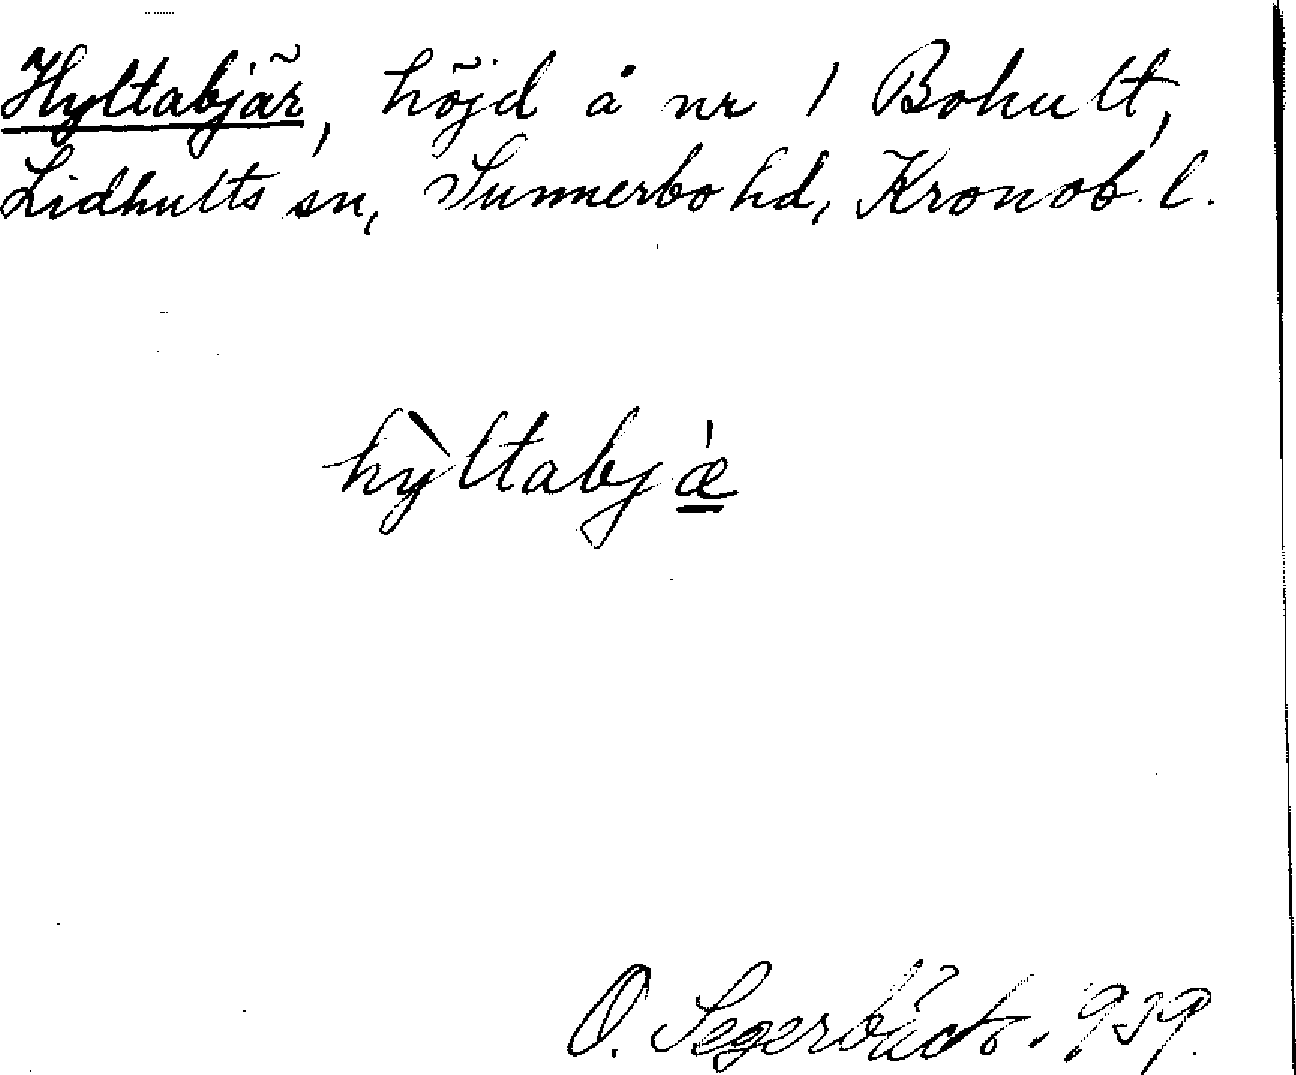 Hyltabjär, höjd å nr 1 Bohult,
Lidhults sn, Sunnerbo hd, Kronob. l.
hy̆̀ltabjǽ̲
O. Segerbäck. 1939.